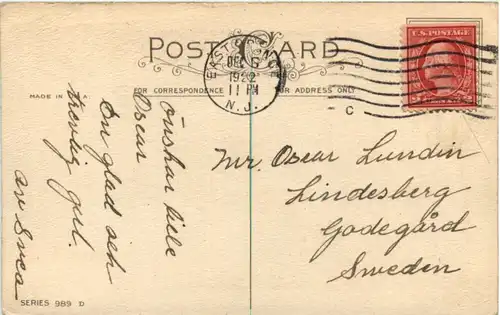 POST CARD
EAST ORANGE
DEC 5
1922
11 PM
N.J.
U.S. POSTAGE
MADE IN U.S.A.
FOR CORRESPONDENCE
FOR ADDRESS ONLY
C
En glad och
trevlig jul.
önskar lille
Oscar
av Svea
Mr. Oscar Lundin
Lindesberg
Godegård
Sweden
SERIES 989 D